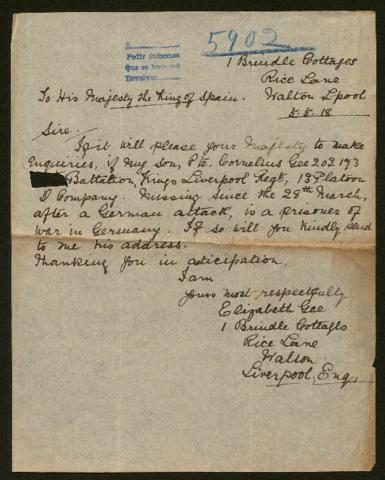 5902
Pedir informes
Que se
Devolver
1 Brindle Cottages
Rice Lane
Walton Lpool
5.5.18
To His Majesty the King of Spain.
Sire.
If it will please your Majesty to make
Enquiries, if my Son, Pte. Cornelius Gee 202193
Battalion, Kings Liverpool Regt, 13 Platoon
D Company. Missing since the 28th March,
after a German attack, is a prisoner of
war in Germany. If so will you kindly send
to me his address.
Thanking you in anticipation,
I am
yours most respectfully
Elizabeth Gee
1 Brindle Cottages
Rice Lane
Walton
Liverpool, Eng,